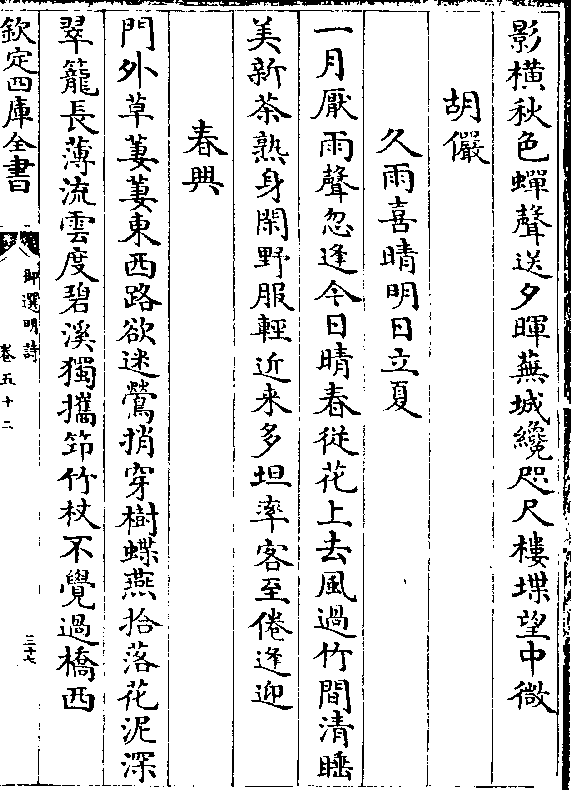 影橫秋色蟬聲送夕暉蕪城纔咫尺樓堞望中微
胡儼
久雨喜晴明日立夏
一月厭雨聲忽逢今日晴春從花上去風過竹間清睡
美新茶熟身閑野服輕近来多坦率客至倦逢迎
春興
門外草萋萋東西路欲迷鶯捎穿樹蝶燕拾落花泥深
翠籠長薄流雲度碧溪獨攜笻竹杖不覺過橋西
欽定四庫全書
御選明詩
卷五十二
三十七